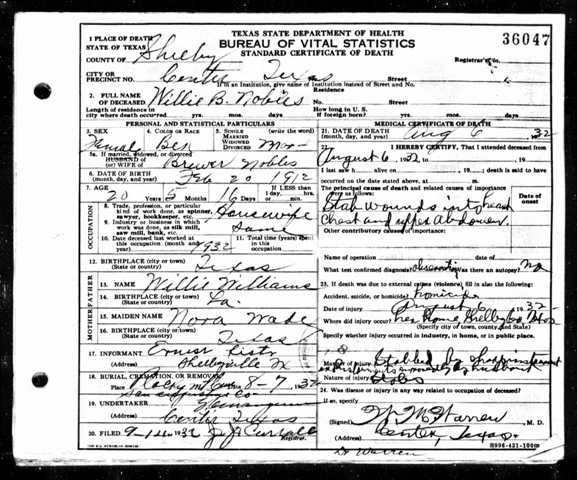 TEXAS STATE DEPARTMENT OF HEALTH
BUREAU OF VITAL STATISTICS
STANDARD CERTIFICATE OF DEATH
36047
1 PLACE OF DEATH
STATE OF TEXAS
COUNTY OF Shelby
Registrar's
CITY OR PRECINCT NO. Center Texas Street
If in an Institution, give name of Institution instead of Street and No.
2. FULL NAME OF DECEASED Willie B. Nobles Residence Street
Length of residence in city where death occurred yrs. mos. days
How long in U. S. if foreign born? yrs. mos. days
PERSONAL AND STATISTICAL PARTICULARS
3. SEX
4. COLOR OR RACE
5. SINGLE MARRIED WIDOWED DIVORCED (write the word)
5a. If married, widowed or divorced HUSBAND of (or) WIFE of Brewer Nobles
6. DATE OF BIRTH (month, day, year) Feb 20 1912
7. AGE 20 Years 5 Months 16 Days If LESS than 1 day, hrs. min.
OCCUPATION
8. Trade, profession, or particular kind of work done, as spinner, sawyer, bookkeeper, etc. Housewife
9. Industry or business in which work was done, as silk mill, saw mill, bank, etc. Same
10. Date deceased last worked at this occupation (month and year) 1932
11. Total time (years) spent in this occupation
12. BIRTHPLACE (city or town) (State or country) Texas
FATHER
13. NAME Willie Williams
14. BIRTHPLACE (city or town) (State or country) La.
MOTHER
15. MAIDEN NAME Nora Wade
16. BIRTHPLACE (city or town) (State or country) Texas
17. INFORMANT
Shelbyville Tx
18. BURIAL, CREMATION, OR REMOVAL
Place 8-7, 32
San Augustine Co
19. UNDERTAKER
Center Texas
20. FILED 32 Registrar
MEDICAL CERTIFICATE OF DEATH
21. DATE OF DEATH (month, day, year) Aug 6 , 32
22. I HEREBY CERTIFY, That I attended deceased from
August 6, 1932 , 19 to , 19
I last saw h alive on , 19 ; death is said to have
occurred on the date stated above, at m.
The principal cause of death and related causes of importance were as follows:
Date of onset
Stab Wounds into heart
Chest and upper Abdomen
Other contributory causes of importance:
Name of operation date of
What test confirmed diagnosis? Was there an autopsy? No
23. If death was due to external causes (violence) fill in also the following:
Accident, suicide, or homicide? homicide
Date of injury August 6, 1932
Where did injury occur? her home, Shelby Co, Texas
(Specify city or town, county, and State)
Specify whether injury occurred in industry, in home, or in public place.
Manner of injury Stabbed by sharp instrument
husband
Nature of injury Stabs
24. Was disease or injury in any way related to occupation of deceased?
If so, specify
(Signed) Warren , M. D.
Center, Texas.
Dr Warren